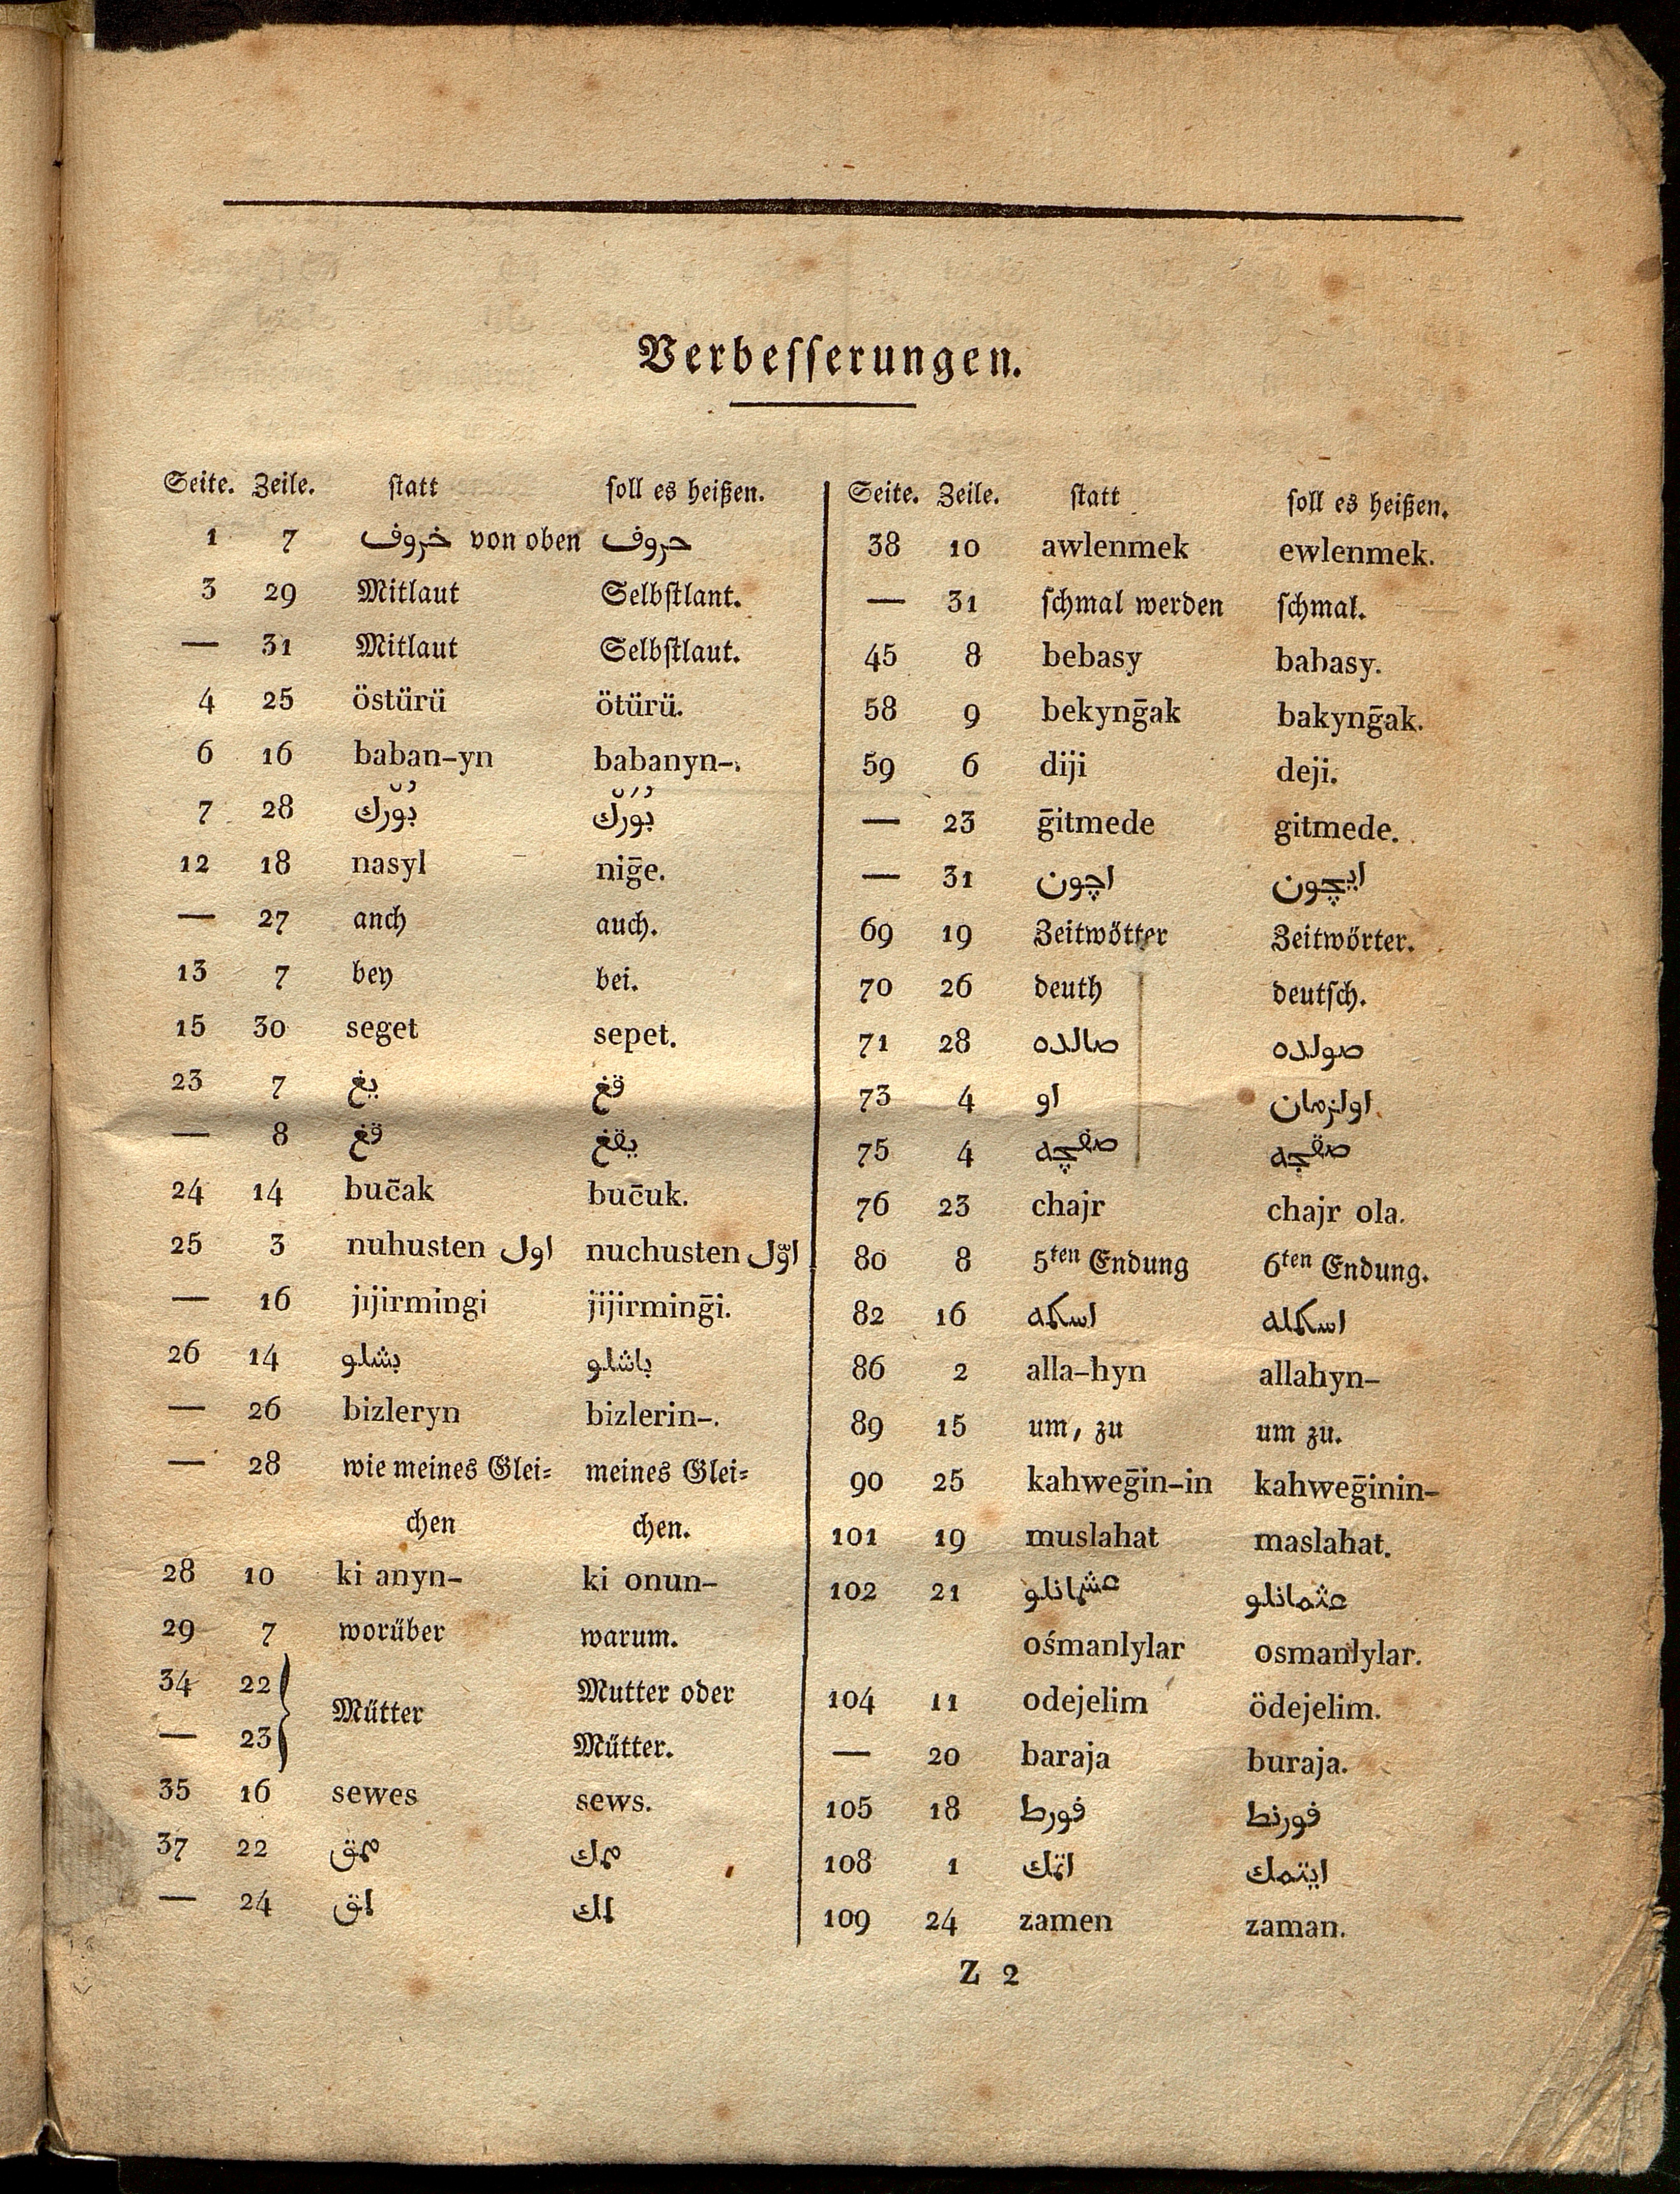 Verbesserungen.
Seite. Zeile. statt soll es heißen.
1 7 خروف von oben حروف
3 29 Mitlaut Selbstlant.
— 31 Mitlaut Selbstlaut.
4 25 östürü ötürü.
6 16 baban-yn babanyn-.
7 28
12 18 nasyl niḡe.
— 27 anch auch.
13 7 bey bei.
15 30 seget sepet.
23 7 يغ قغ
— 8 قغ يقغ
24 14 buc̄ak buc̄uk.
25 3 nuhusten اول nuchusten اوّل
— 16 jijirmingi jijirminḡi.
26 14 بشلو باشلو
— 26 bizleryn bizlerin-.
— 28 wie meines Glei= meines Glei=
chen chen.
28 10 ki anyn- ki onun-
29 7 worüber warum.
34 22 } Mütter Mutter oder
— 23 Mütter.
35 16 sewes sews.
37 22 ممق ممك
— 24 لمق لمك
Seite. Zeile. statt soll es heißen.
38 10 awlenmek ewlenmek.
— 31 schmal werden schmal.
45 8 bebasy babasy.
58 9 bekynḡak bakynḡak.
59 6 diji deji.
— 23 ḡitmede gitmede.
— 31 اچون ايچون
69 19 Zeitwötter Zeitwörter.
70 26 deuth deutsch.
71 28 صالده صولده
73 4 او اولزمان
75 4 صفچه صقچه
76 23 chajr chajr ola.
80 8 5ten Endung 6ten Endung.
82 16 اسكمه اسكمله
86 2 alla-hyn allahyn-
89 15 um, zu um zu.
90 25 kahweḡin-in kahweḡinin-
101 19 muslahat maslahat.
102 21 عشمانلو عثمانلو
ośmanlylar osmanlylar.
104 11 odejelim ödejelim.
— 20 baraja buraja.
105 18 فورط فورنط
108 1 اتمك ايتمك
109 24 zamen zaman.
Z 2